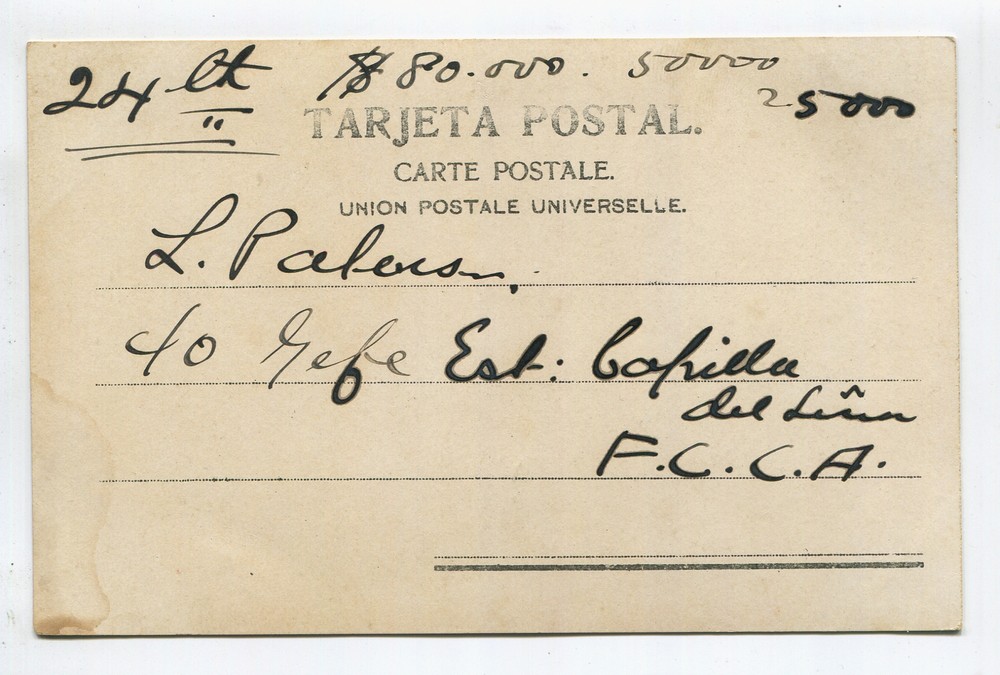 24 lt $ 80.000. 50000
25000
TARJETA POSTAL.
CARTE POSTALE.
UNION POSTALE UNIVERSELLE.
L.
c/o Gefe Est: Capilla
del
F.C.C.A.